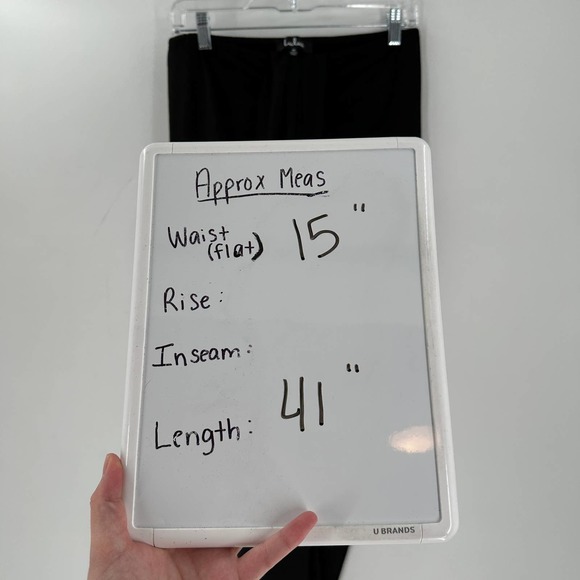 Lulus
Approx Meas
Waist 15"
(flat)
Rise:
Inseam:
Length: 41"
U BRANDS